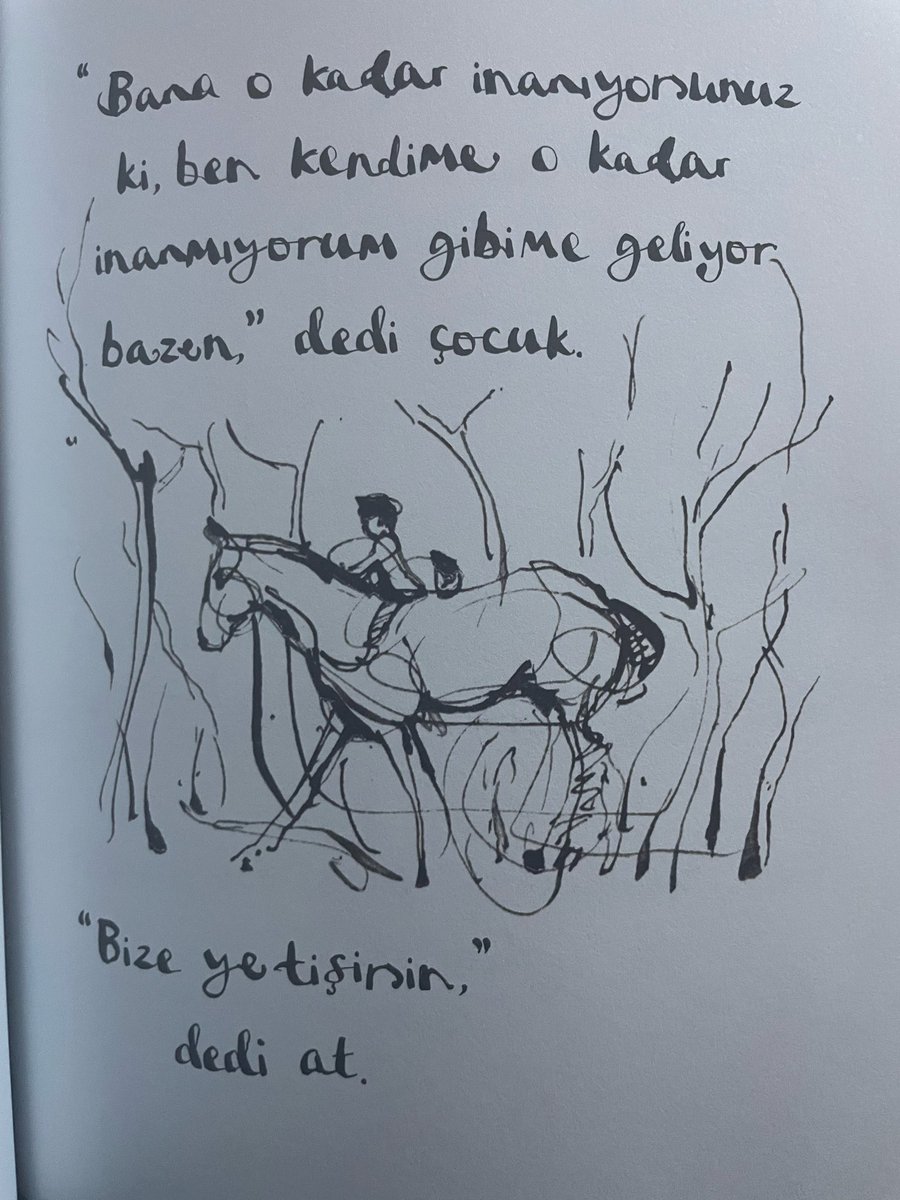 “Bana o kadar inanıyorsunuz
ki, ben kendime o kadar
inanmıyorum gibime geliyor
bazen,” dedi çocuk.
“
“Bize yetişirsin,”
dedi at.